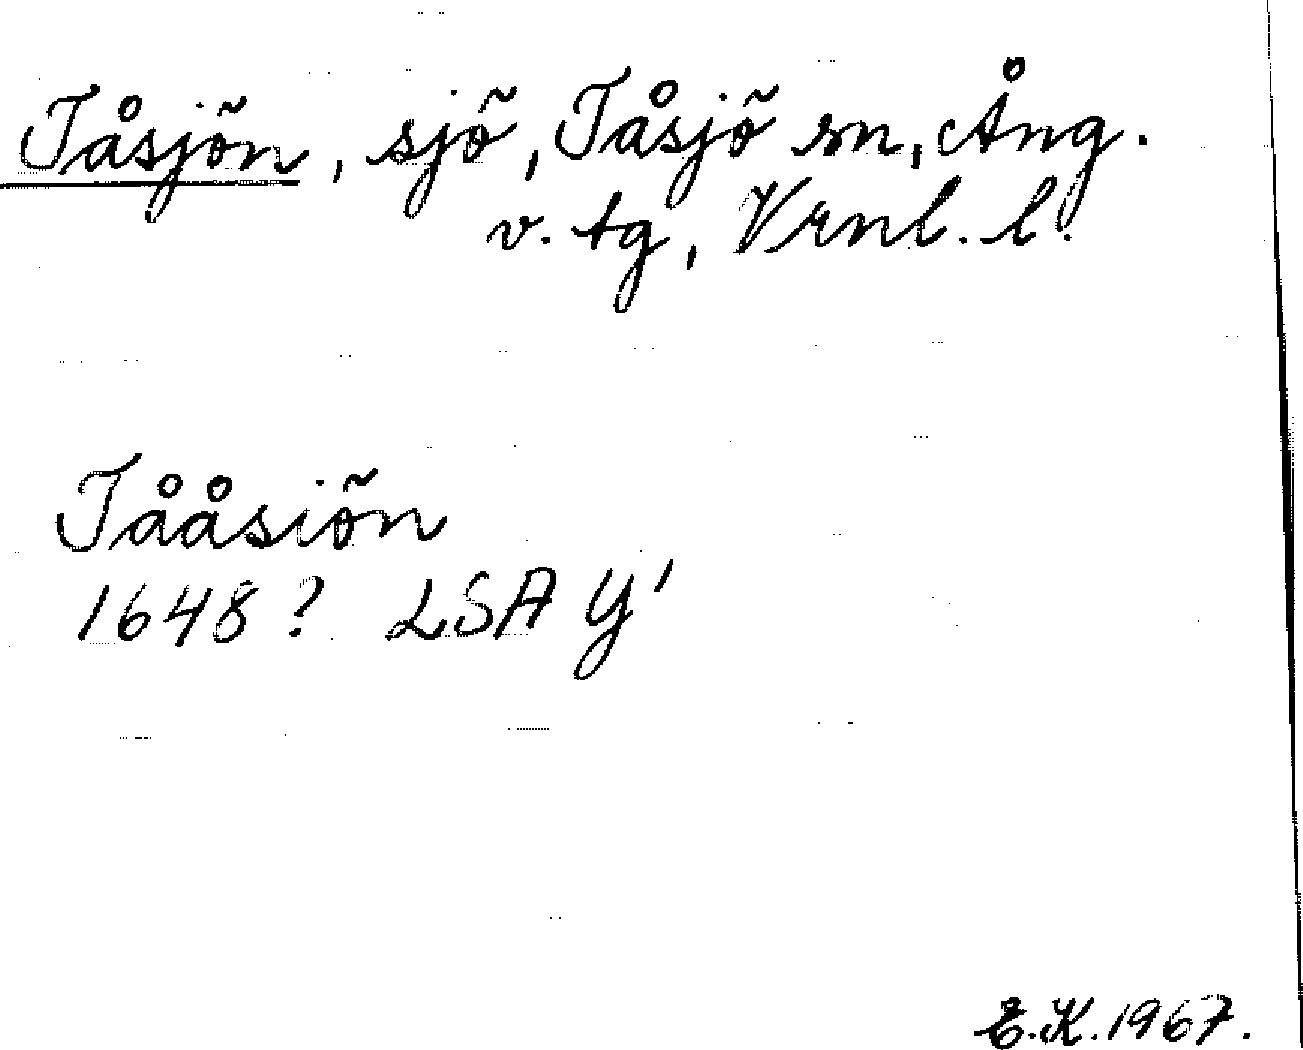 Tåsjön, sjö, Tåsjö sn, Ång.
v. tg, Vrnl. l.
Tååsiön
1648? LSA Y'
E.K. 1967.